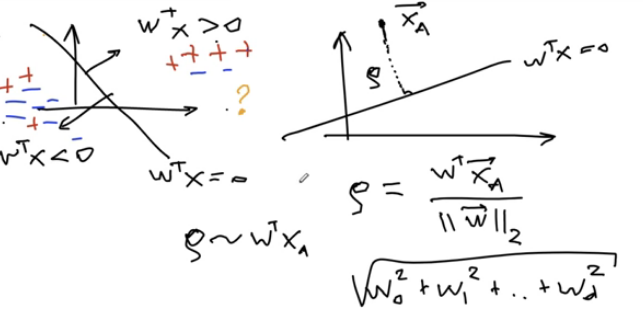 wᵀx > 0
+ + + +
− −
+ +
− − − −
+ − −
?
wᵀx < 0
wᵀx = 0
x⃗_A
ρ
wᵀx = 0
ρ = wᵀx⃗_A / ||w⃗||₂
ρ ~ wᵀx_A
√(w₀² + w₁² + .. + w_d²)